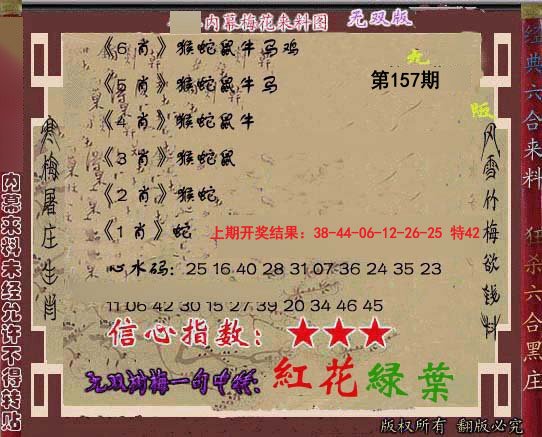 内幕梅花来料图 无双版
《6 肖》猴蛇鼠牛马鸡
第157期
《5 肖》猴蛇鼠牛马
《4 肖》猴蛇鼠牛
《3 肖》猴蛇鼠
《2 肖》猴蛇
《1 肖》蛇
上期开奖结果：38-44-06-12-26-25 特42
心水码：25 16 40 28 31 07 36 24 35 23
11 06 42 30 15 27 39 20 34 46 45
信心指数：★★★
无双测梅一句中特：紅花緑葉
寒梅屠庄生肖
风雪竹梅欲钱料
内幕来料未经允许不得转贴
经典六合来料 狂杀六合黑庄
版权所有 翻版必究